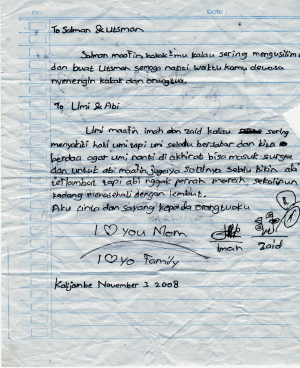 To Salman & Utsman
Salman maafin kakak²mu kalau sering mengusilim
dan buat Utsman semoga nanti waktu kamu dewasa
nyenengin kakak dan orangtua.
To Umi & Abi
Umi maafin imah dan zaid kalau sering
menyakiti hati umi tapi umi selalu bersabar dan bisa
berdoa agar umi nanti di akhirat bisa masuk surga
dan untuk abi maafin jugaya soalnya selalu bikin abi
terlambat tapi abi nggak pernah marah sekalipun
kadang menasehati dengan lembut.
Aku cinta dan sayang kepada orangtuaku
I ♡ you Mom
Imah Zaid
I ♡ yo Family
November 3 2008